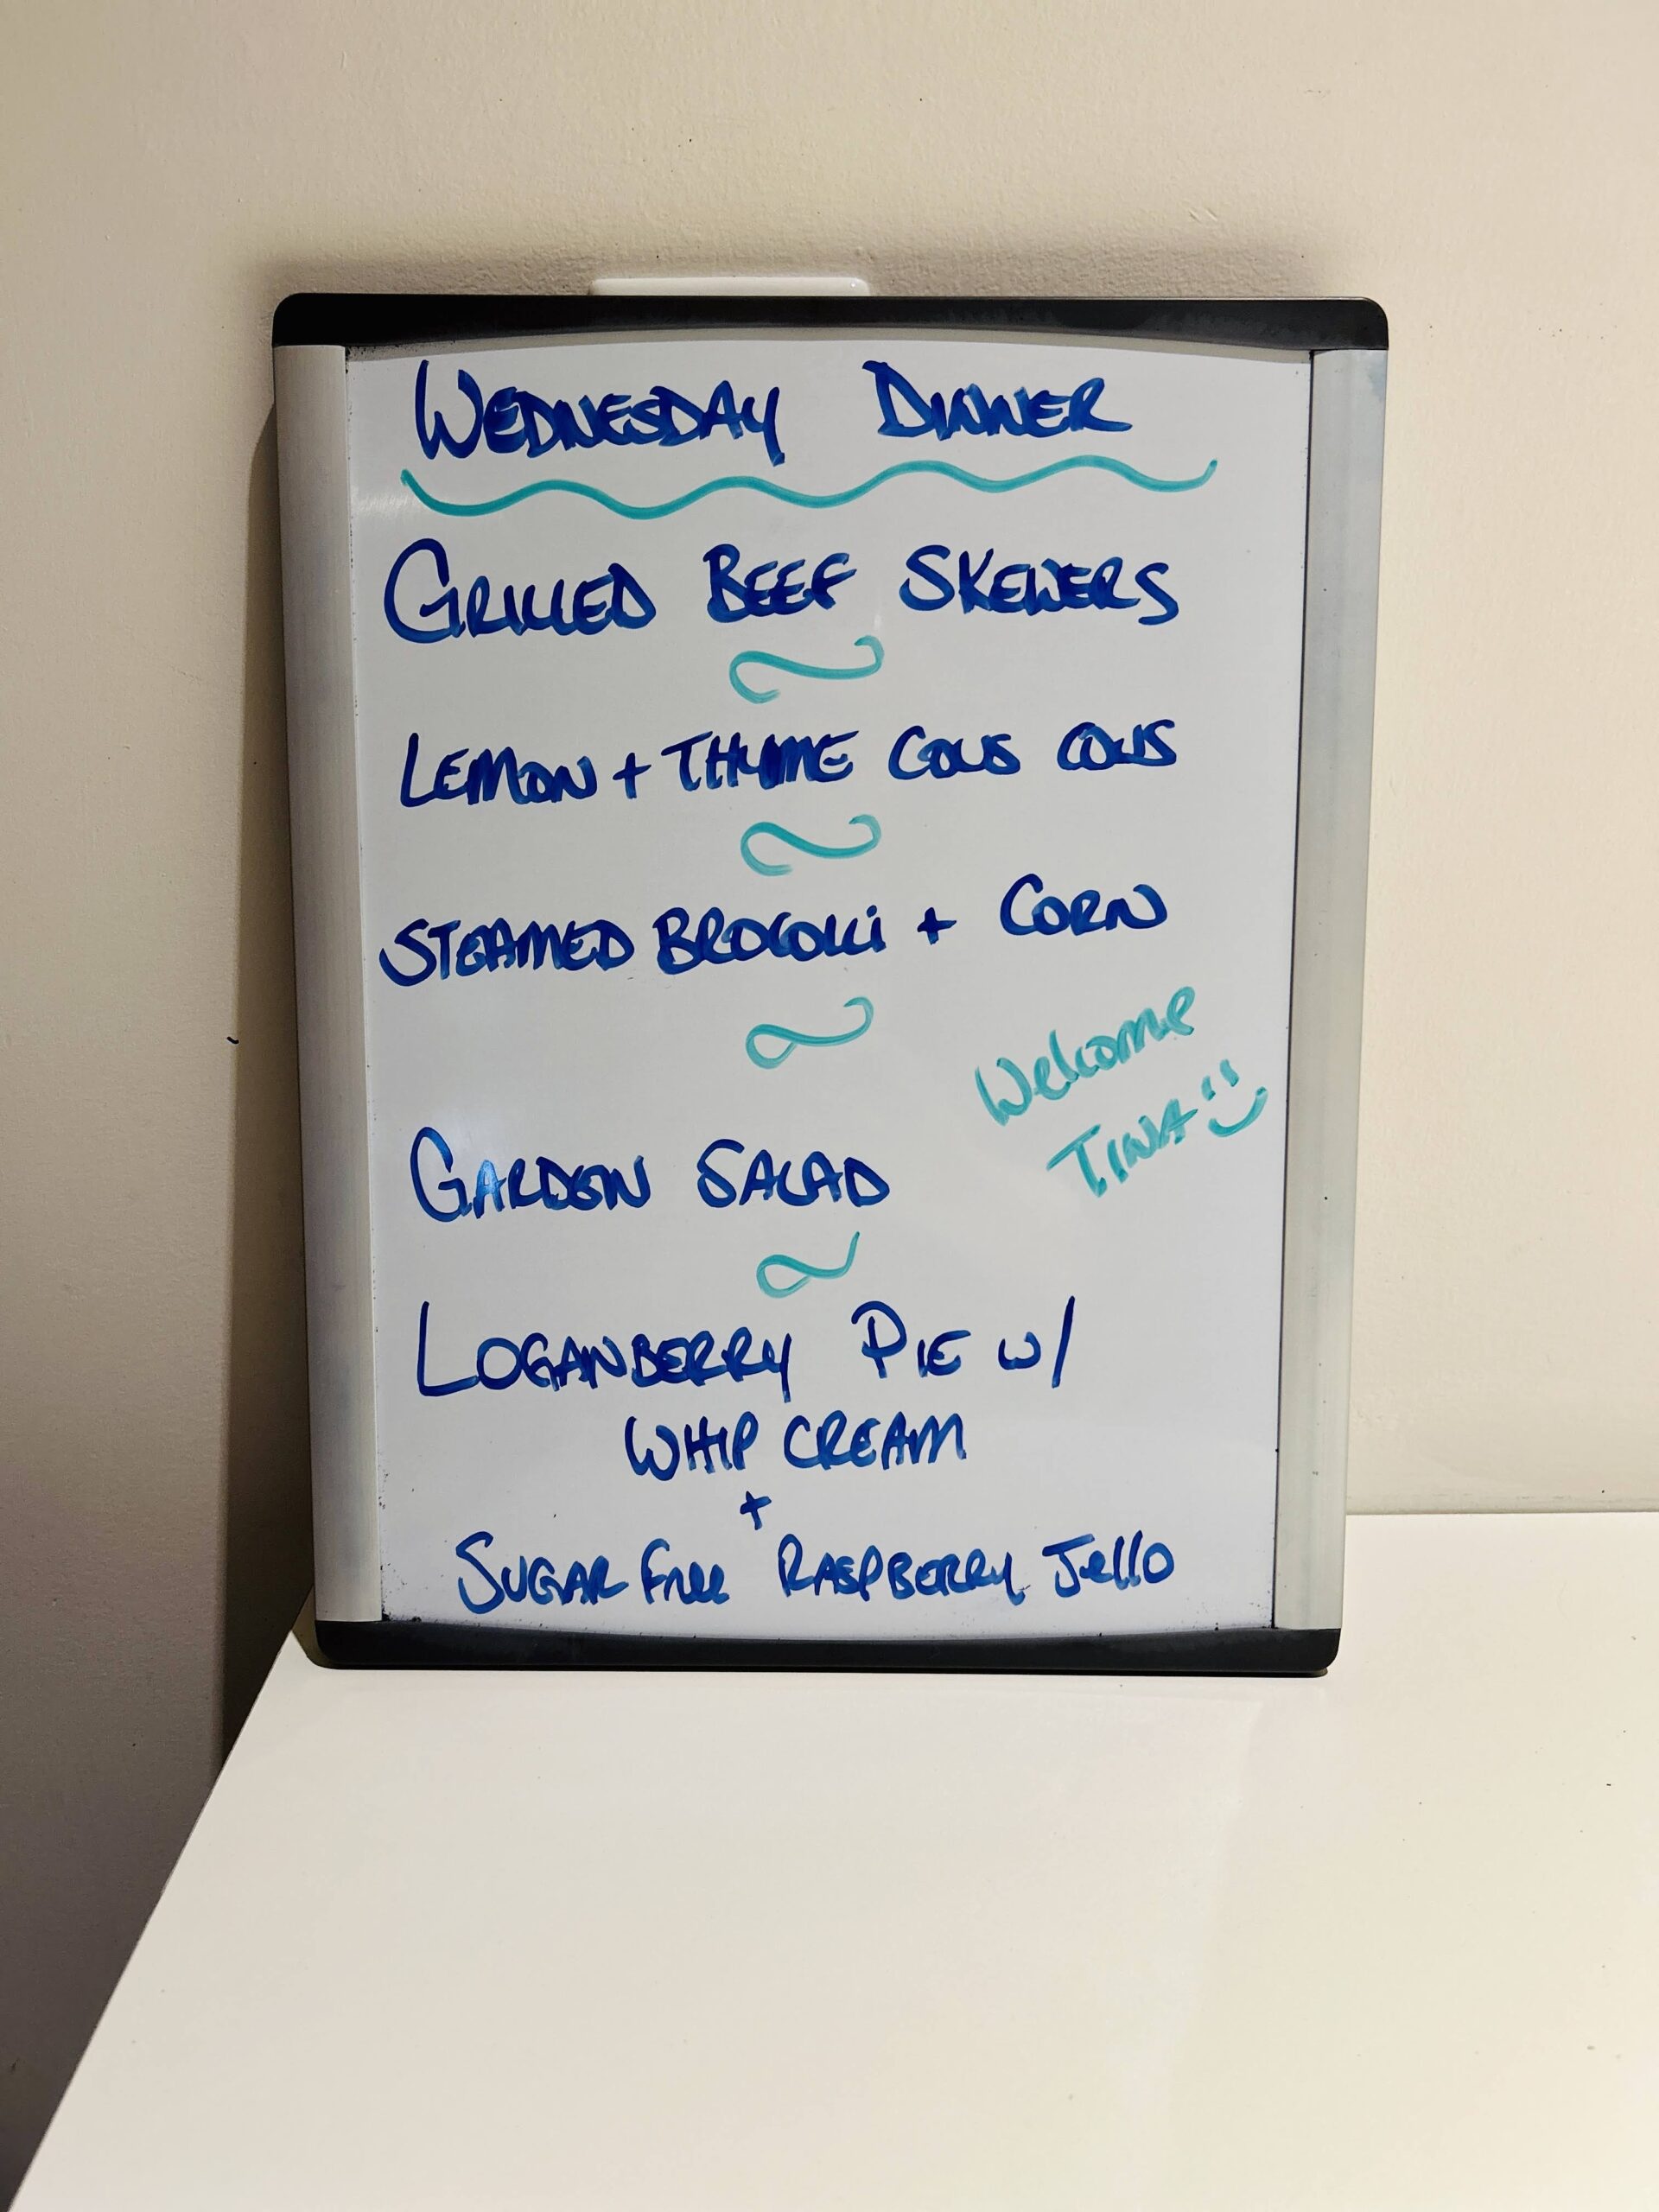 WEDNESDAY DINNER
GRILLED BEEF SKEWERS
LEMON + THYME COUS COUS
STEAMED BROCOLLi + CORN
Welcome
TINA :)
GARDEN SALAD
LOGANBERRY PIE w/
WHIP CREAM
+
SUGAR FREE RASPBERRY Jello